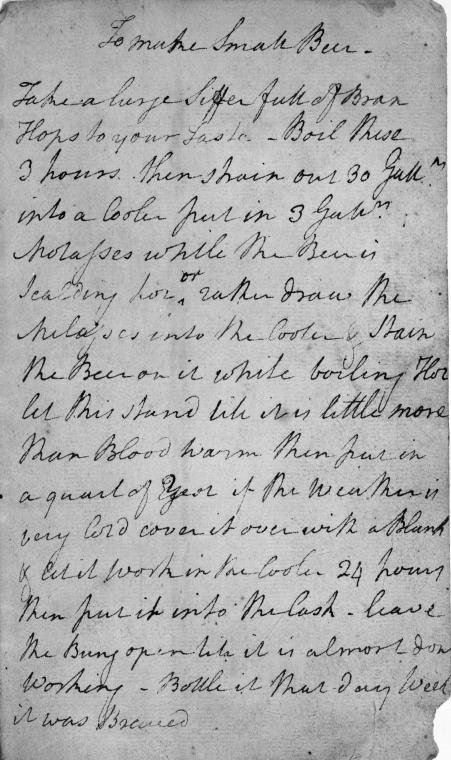 To make Small Beer -
Take a large Siffer full of Bran
Hops to your Taste - Boil these
3 hours. then strain out 30 Gall.ⁿ
into a Cooler put in 3 Gallⁿ
Molasses while the Beer is
Scalding hot or rather draw the
Molasses into the Cooler & Stain
the Beer on it while boiling Hot
let this stand till it is little more
than Blood warm then put in
a quart of Yest if the Weather is
very Cold cover it over with a Blank
& let it work in the Cooler 24 hours
then put it into the Cask - leave
the Bung open till it is almost don
working - Bottle it that day Week
it was Brewed